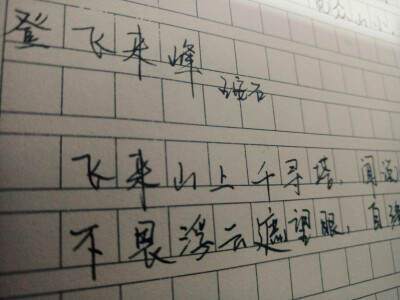 登飞来峰 王安石
飞来山上千寻塔，闻说
不畏浮云遮望眼，自缘